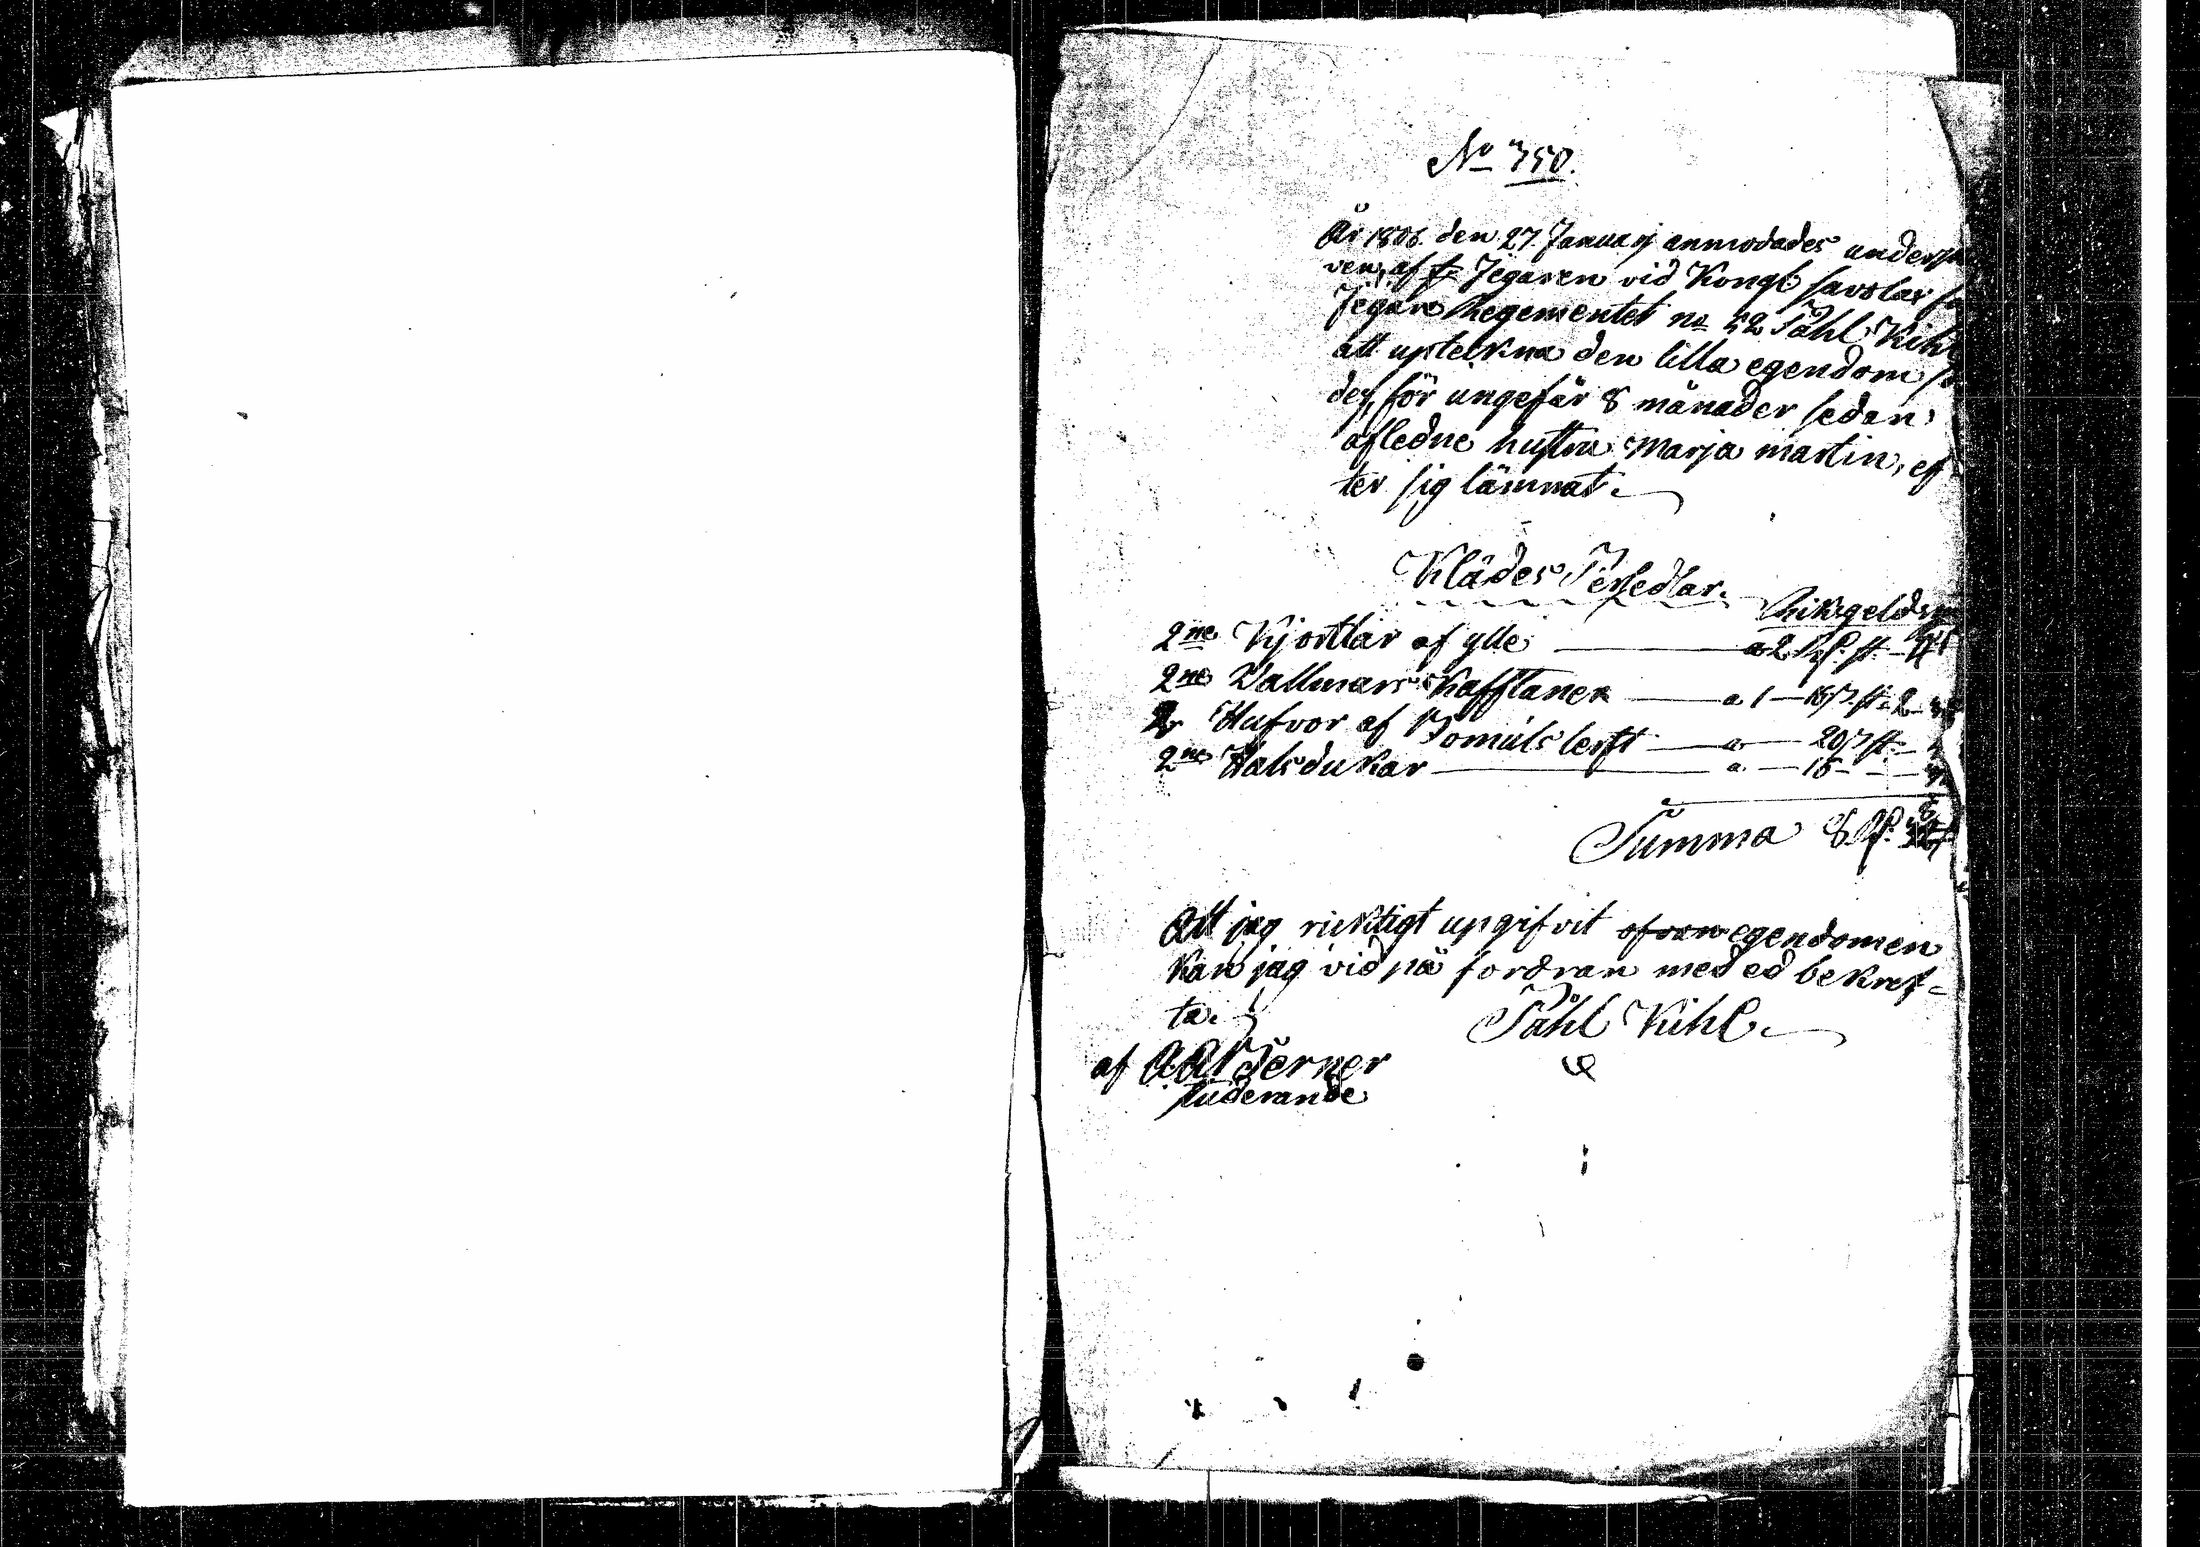 No 350.
År 1806. den 27. Januarj anmodades
ven, af Jegaren vid Kongl. savolax
Jegare Regementet no 52 Påhl Kihl
att upteckna den lilla egendom
des, för ungefär 8 månader sedan
afledne hustru Marja martin, ef-
ter sig lämnat.
Klädes Persedlar.
2ne Kjortlar af ylle a 2 Rd. st.
2ne Vallmars Kafftaner a 1 16 s. st. 2
2 Hufvor af Bomuls lerft a 20 s st.
2ne Halsdukar a. 16
Summa 8 Rd.
Att jag ricktigt upgifvit ofvan egendomen
kan jag vid på fordran med ed bekref-
ta.
Påhl Kihl.
af Serner
studerande